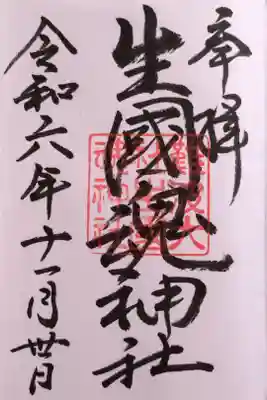 奉拝
生國魂神社
令和六年十一月丗日